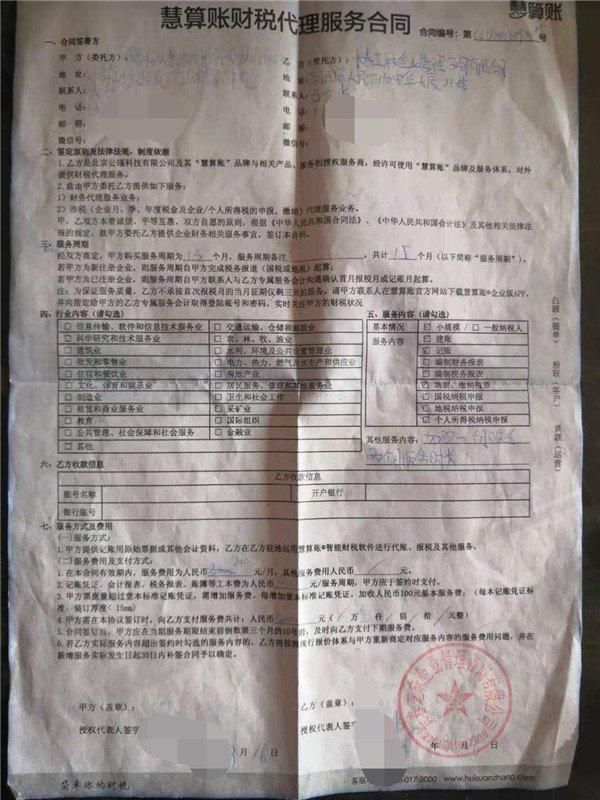 慧算账财税代理服务合同
慧算账
合同编号：第 号
一、合同签署方
甲 方（委托方）：
乙 方（委托方）：
地址：
地址：
联系人：
联系人：
电话：
电话：
邮箱：
邮箱：
微信号：
微信号：
二、签定原则及法律法规、制度依据
1.乙方是北京公瑾科技有限公司及其“慧算账”品牌与相关产品、服务的授权服务商，经许可使用“慧算账”品牌及服务体系，对外
提供财税代理服务。
2.兹由甲方委托乙方提供如下服务：
1）财务代理服务业务；
2）涉税（企业月、季、年度税金及企业/个人所得税的申报、缴纳）代理服务业务。
甲、乙双方本着诚信、平等互惠、双方自愿的原则，根据《中华人民共和国合同法》、《中华人民共和国会计法》及其他相关法律法
规的规定，就甲方委托乙方提供企业财务相关服务事宜，签订本合同。
三、服务周期
经双方商定，甲方购买服务周期为 13 个月，服务周期备注 ，共计 15 个月（以下简称“服务周期”）。
若甲方为新注册企业，则服务周期自甲方完成税务报道（国税或地税）起算；
若甲方为已注册企业，则服务周期自甲方联系人与乙方专属服务会计沟通确认首月报税月或记账月起算。
为保证服务质量，乙方不承接首次报税月的当月征期仅剩三天的服务，请甲方联系人在慧算账官方网站下载慧算账®企业版APP，
并向指定给甲方的乙方专属服务会计取得登陆账号和密码，实时关注甲方的财税状况
四、行业内容（请勾选）
五、服务内容（请勾选）
□ 信息传输、软件和信息技术服务业
□ 交通运输、仓储和邮政业
基本情况
☑ 小规模/□ 一般纳税人
□ 科学研究和技术服务业
□ 农、林、牧、渔业
服务内容
☑ 建账
□ 建筑业
□ 水利、环境及公共设置管理业
☑ 记账
□ 批发和零售业
□ 电力、热力、燃气及水生产和供应业
☑ 编制财务报表
□ 住宿和餐饮业
□ 房地产业
☑ 编制税务报表
□ 文化、体育和娱乐业
□ 居民服务、修理和其他服务业
☑ 填制、缴纳税票
□ 制造业
□ 卫生和社会工作
☑ 国税纳税申报
□ 租赁和商业服务业
□ 采矿业
☑ 地税纳税申报
□ 教育
□ 国际组织
☑ 个人所得税纳税申报
□ 公共管理、社会保障和社会服务
□ 金融业
□ 其他
其他服务内容：
两个月服务时长
白联（提单） 粉联（客户） 黄联（运营）
六、乙方收款信息
乙方收款信息
账号名称
开户银行
银行账号
七、服务方式及费用
（一）服务方式：
1.甲方提供记账用原始票据或其他会计资料，乙方在乙方驻地运用慧算账®智能财税软件进行代账、报税及其他服务。
（二）服务费用及支付方式：
1.在本合同有效期内，服务费用为人民币 元/月，其他服务费用人民币 元。
2.记账凭证、会计报表、税务报表、账簿等工本费为人民币 元/服务周期，甲方应于签约时支付。
3.甲方票据量超过壹本标准记账凭证，需增加服务费，每增加壹本标准记账凭证，加收人民币100元基本服务费；（每本记账凭证标
准：装订厚度 15mm）
4.甲方需在本协议签订时，向乙方支付服务费共计：人民币 仟 佰 拾 元整）
5.合同签订后，甲方应在当期服务期限结束前倒数第三个月的10号前，及时向乙方支付下期服务费。
6.若乙方实际服务内容超出签约时勾选的服务内容的，乙方将按照现行报价体系与甲方重新商定对应服务内容的服务费用问题，并在
新增服务实际发生日起30日内补签合同予以确定。
甲方（盖章）：
乙方（盖章）：
授权代表人签字
授权代表人签字
月 16 日
年 月 日
简单你的财税
客服 -017-2000
www.huisuanzhang.com